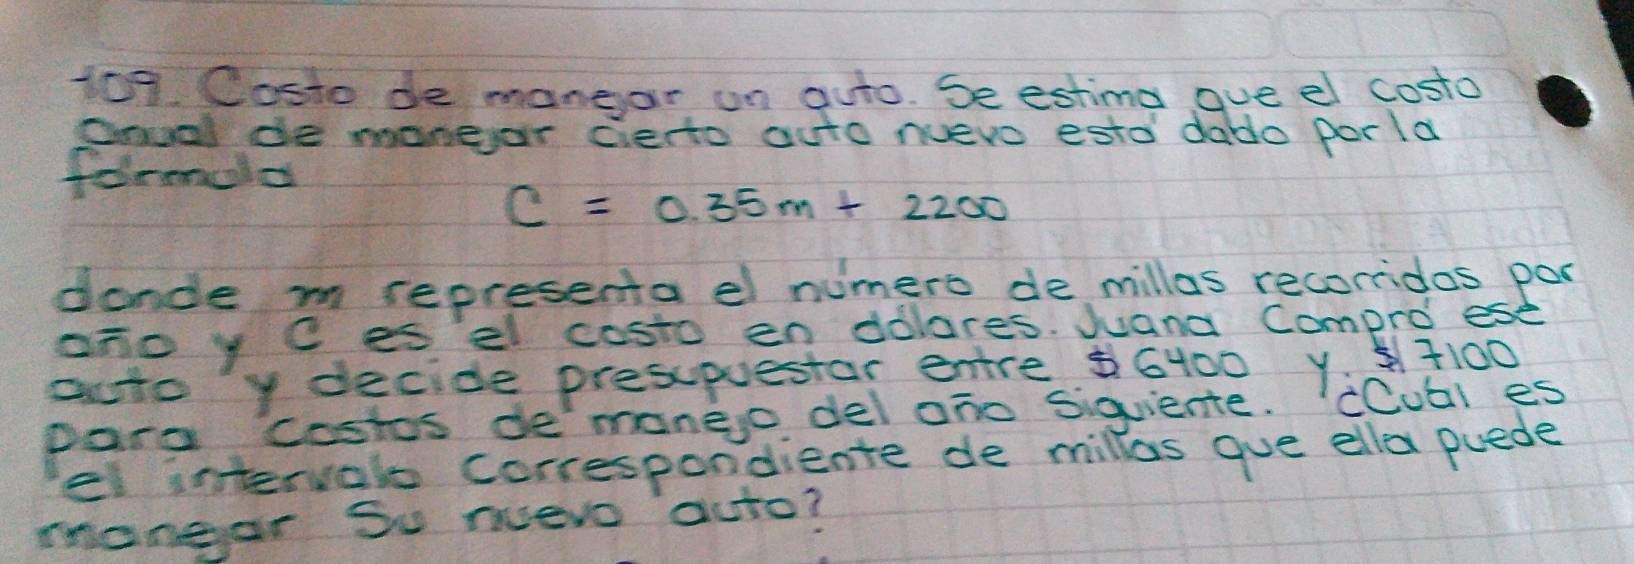 109. Costo de manejar un auto. Se estima que el costo
anual de manejar cierto auto nuevo está dado por la
fórmula
C = 0.35m + 2200
donde m representa el número de millas recorridos por
año y C es el costo en dólares. Juana Compró ese
auto y decide presupuestar entre $6400 y $7100
para costos de manejo del año siguiente. ¿Cuál es
el intervalo correspondiente de millas que ella puede
manejar su nuevo auto?